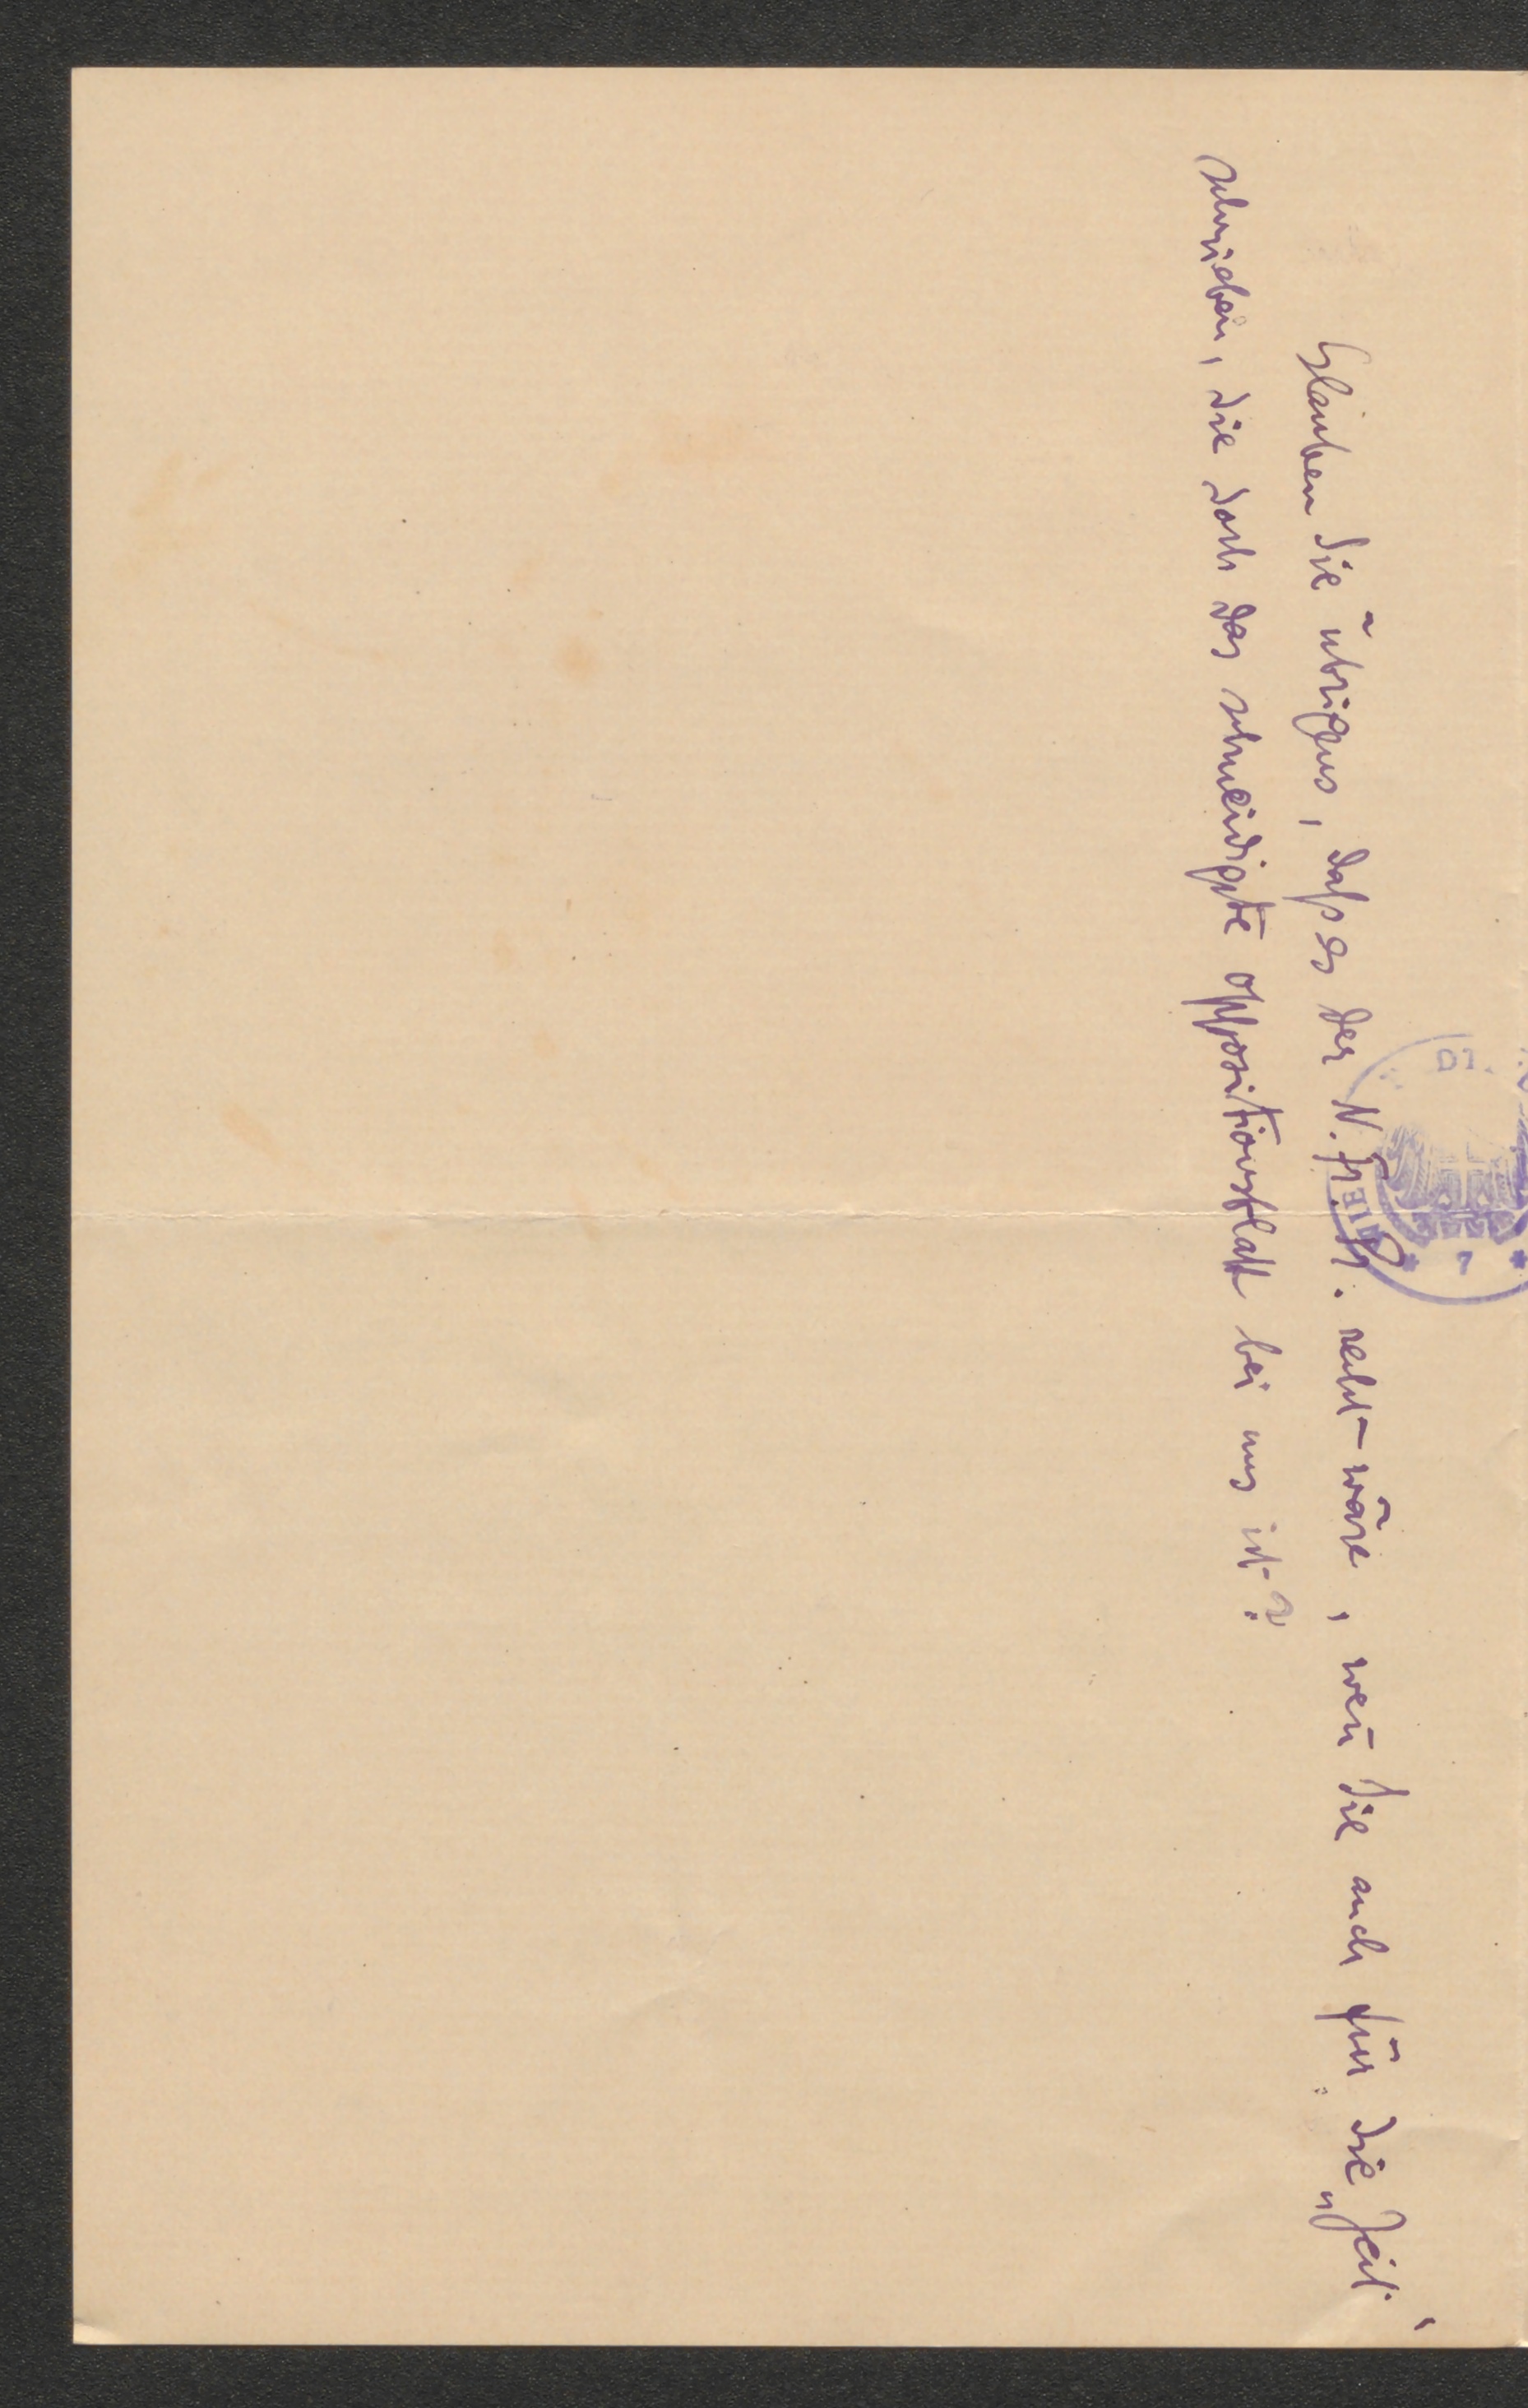 Glauben Sie übrigens, daß es der N. Fr. Pr. recht wäre, wen̄ Sie auch für die „Zeit“
schrieben, die doch das schneidigste Oppositionsblatt bei uns ist?
WIEN
* 7 *